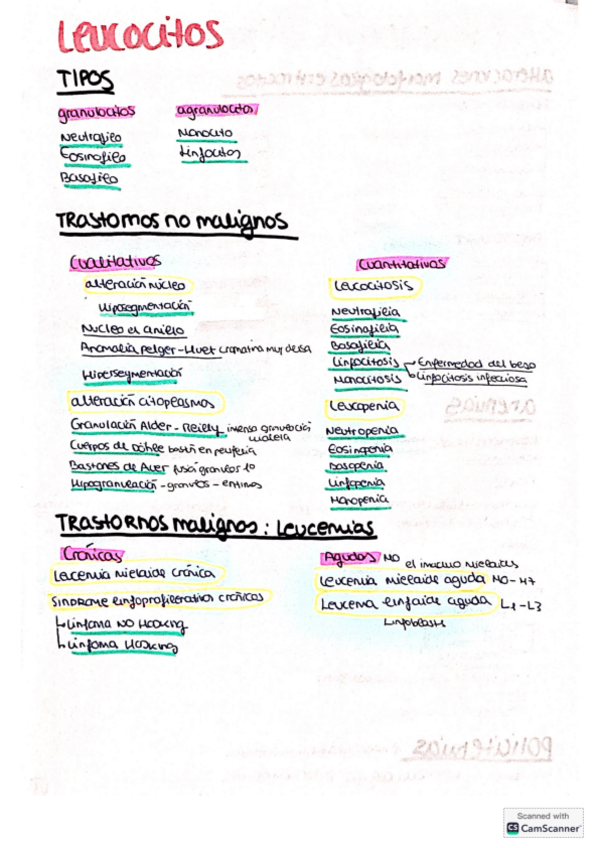 Leucocitos
TIPOS
granulocitos
Neutrofilo
Eosinofilo
Basofilo
agranulocitos
Monocito
Linfocitos
TRASTORNOS no malignos
Cualitativos
alteración núcleo
Hiposegmentación
Nucleo en anillo
Anomalia Pelger-Huet cromatina muy densa
Hipersegmentación
alteración citoplasmas
Granulación Alder-Reilly intensa granulación
Cuerpos de Döhle basofi en periferia
Bastones de Auer fusia granulos 1º
Hipogranulación - granulos -
Cuantitativos
Leucocitosis
Neutrofilia
Eosinofilia
Basofilia
Linfocitosis Enfermedad del beso
Linfocitosis infecciosa
Monocitosis
Leucopenia
Neutropenia
Eosinopenia
Basopenia
Linfopenia
Monopenia
TRASTORNOS malignos: Leucemias
Crónicas
Leucemia mieloide crónica
SINDROME linfoproliferativo crónicas
Linfoma NO Hodking
Linfoma Hodking
Agudas NO
Leucemia mieloide aguda M0-M7
Leucemia linfoide aguda L1-L3
Linfoblasts
alteraciones morfológicas eritrocitos
anemias
POLICITEMIAS
Scanned with
CS CamScanner